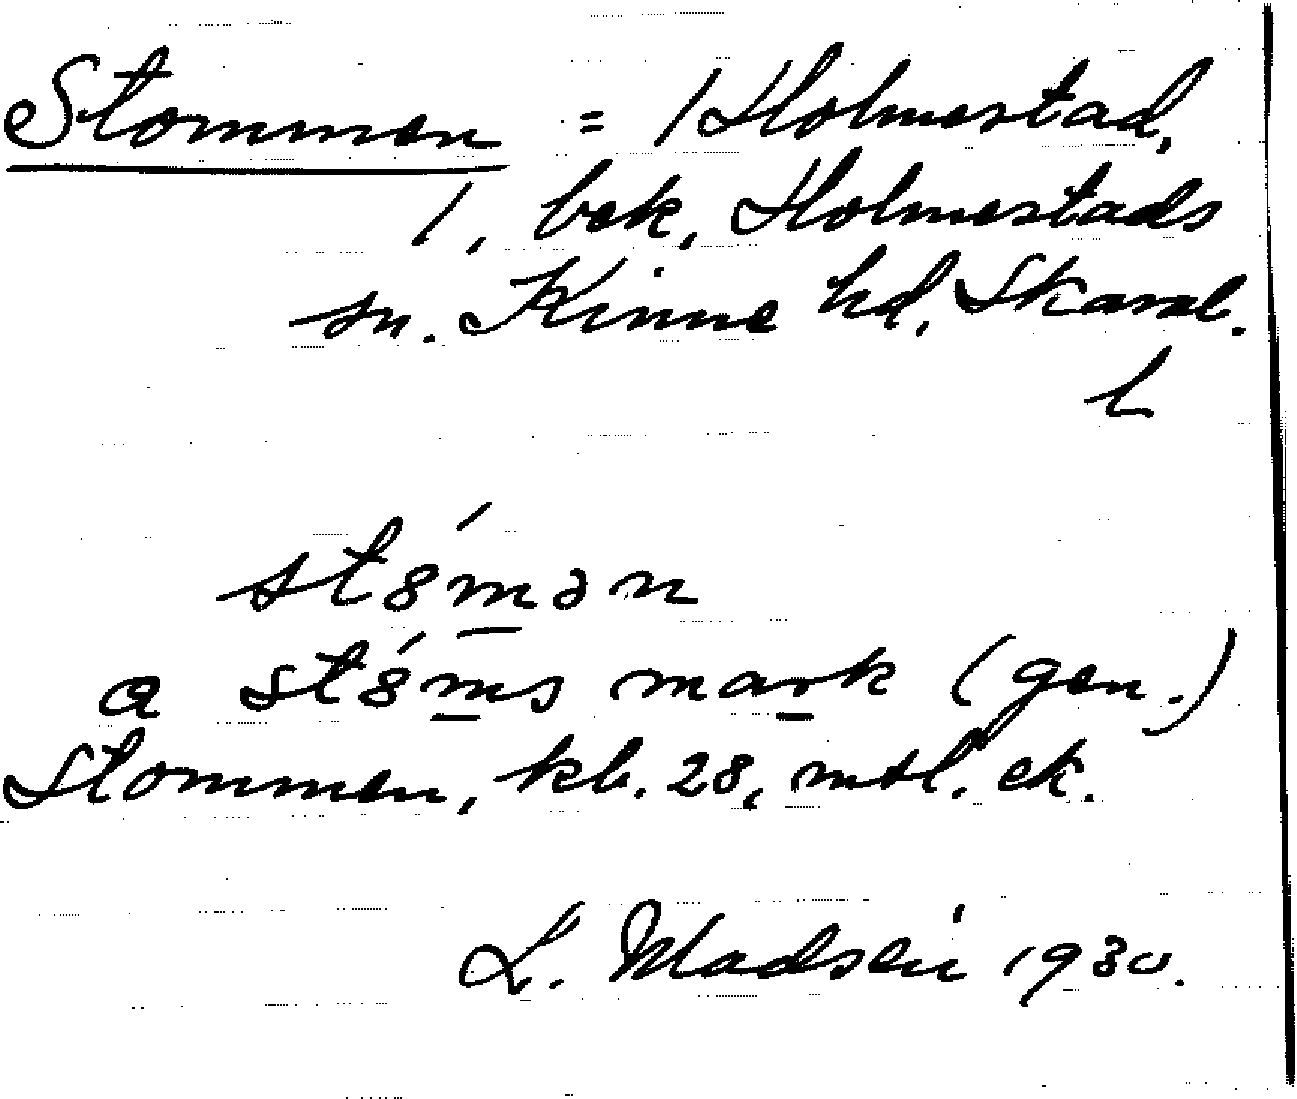 Stommen = / Holmestad,
1, bek, Holmestads
sn. Kinne hd, Skarab.
l
st8́mən
a st8́ms mark (gen.)
Stommen, kb. 28, mtl. ek.
L. Madsén 1930.